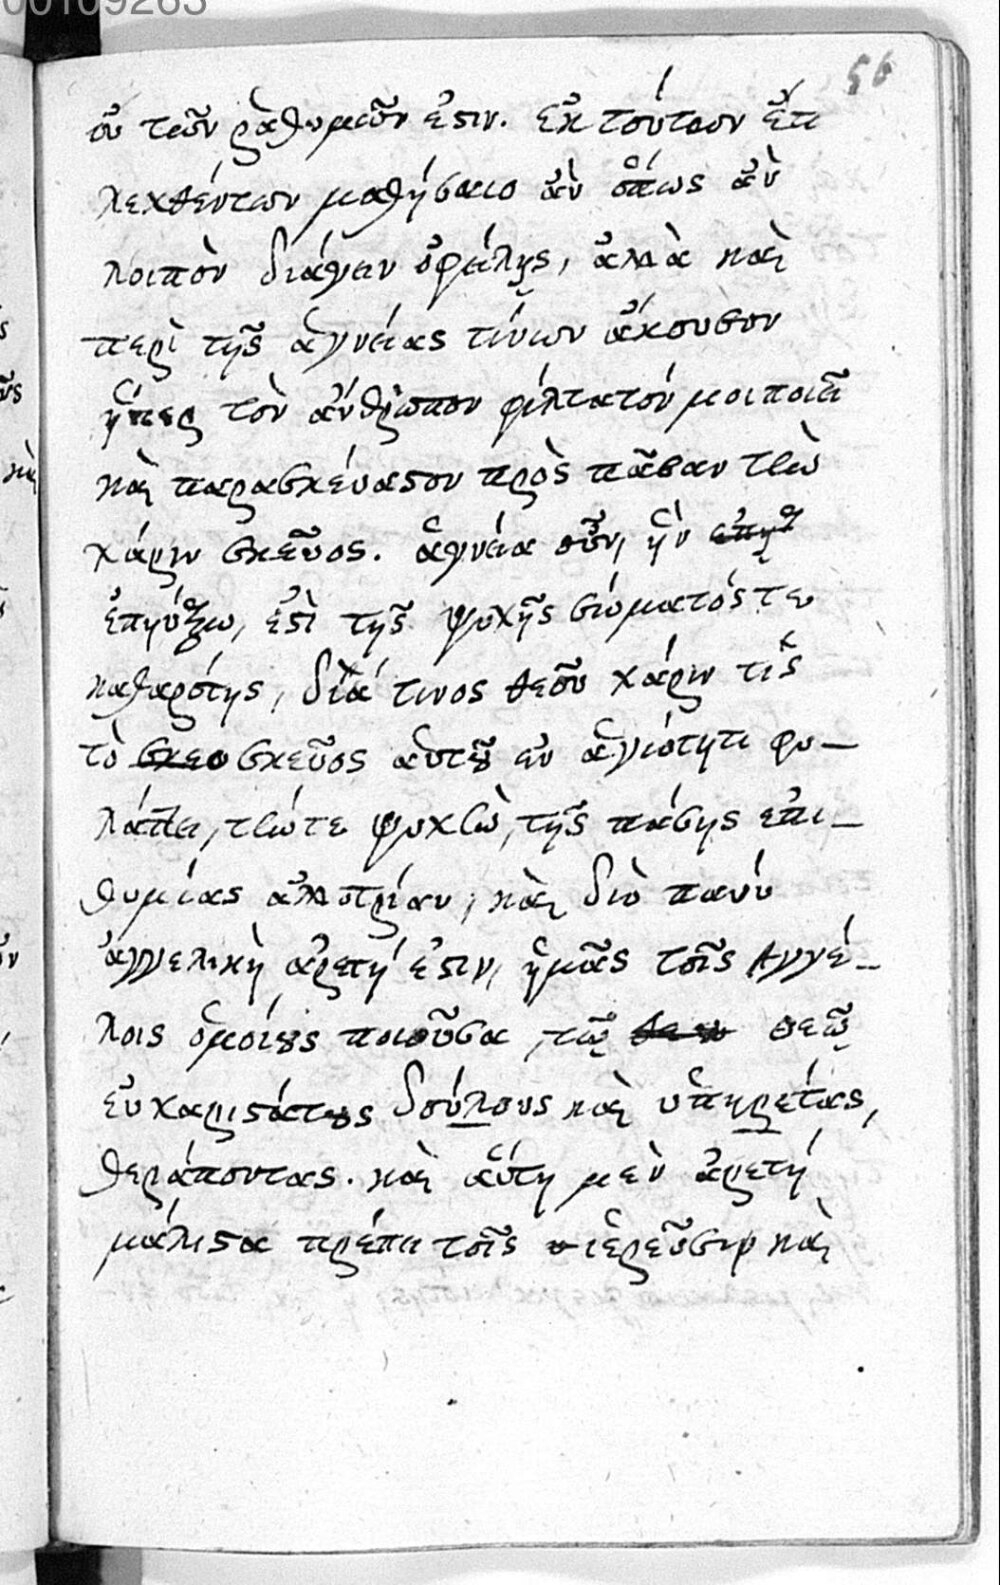 00109263
56
οὐ τῶν ῥαθυμῶν ἐστιν. ἐκ τούτων ἔπι
λεχθέντων μαθήσαιο ἂν ὅπως ἂν
λοιπὸν διάγειν ὀφείλῃς, ἀλλὰ καὶ
περὶ τῆς ἁγνείας τίνων ἄκουσον
ἥπερ τὸν ἄνθρωπον φίλτατόν μοι ποιεῖ
καὶ παρασκεύαστον πρὸς πᾶσαν τὴν
χάριν σκεῦος. ἁγνεία οὖν, ἣν
ἐπηυξω, ἐστὶ τῆς ψυχῆς σώματός τε
καθαρότης, διά τινος θεοῦ χάριν τὶς
τὸ σκεο σκεῦος αὑτοῦ ἐν ἁγιότητι φυ-
λάττει, τήντε ψυχὴν, τῆς πάσης ἐπι-
θυμίας ἀλλοτρίαν, καὶ διὸ πανύ
ἀγγελικὴ ἀρετή ἐστιν, ἡμᾶς τοῖς Αγγέ-
λοις ὁμοίους ποιοῦσα, τῷ θεω θεῷ
εὐχαριστάτους δούλους καὶ ὑπηρέτας,
θεράποντας. καὶ αὕτη μὲν ἀρετή
μάλιστα πρέπει τοῖς ἱερεῦσιν καὶ